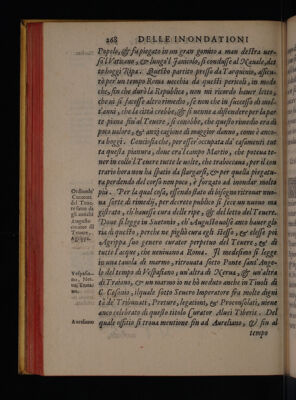 268 DELLE INONDATIONI
Popolo, & fu piegato in un gran gomito a man destra uer-
so'l Vaticano, & lungo'l Ianicolo, si condusse al Nauale, det
to hoggi Ripa. Questo partito preso da Tarquinio, assicu-
rò per un tempo Roma uecchia da questi pericoli, in modo
che, sin che durò la Republica, non mi ricordo hauer letto,
che ui si facesse altro rimedio, se non che in successo di mol-
t'anni, che la città crebbe, & si uenne a distendere per la par
te piana sin'al Teuere, si conobbe, che questo rimedio era di
poco ualore, & anzi cagione di maggior danno, come è anco-
ra hoggi. Conciosia che, per esser occupata da' casamenti tut
ta questa pianura, doue era'l campo Martio, che poteua te-
ner in collo'l Teuere tutte le uolte, che traboccaua, per il con
trario hora non ha spatio da slargarsi, & per quella piegatu-
ra perdendo del corso non poco, è forzato ad inondar molto
più. Per la qual cosa, essendo stato di bisogno ritrouar nuo-
ua sorte di rimedij, per decreto publico si fece un nuouo ma
gistrato, c'hauesse cura delle ripe, & del letto del Teuere.
Doue si legge in Suetonio, ch'Augusto uolse anco hauer glo
ria di questo, perche ne pigliò cura egli stesso, & elesse più
Agrippa suo genero curator perpetuo del Teuere, & di
tutte l'acque, che ueniuano a Roma. Il medesimo si legge
in una tauola di marmo, ritrouata sotto Ponte sant'Ange-
lo del tempo di Vespasiano; un'altra di Nerua, & un'altra
di Traiano, & un marmo io ne hò ueduto anche in Tiuoli di
C. Cesonio, il quale sotto Seuero Imperatore fra molte digni
tà de' Tribunati, Preture, legationi, & Proconsolati, uiene
anco celebrato di questo titolo Curator Aluei Tiberis. Del
quale offitio si troua mentione sin ad Aureliano, & sin al
tempo
Augusto
Teuere,
Aureliano